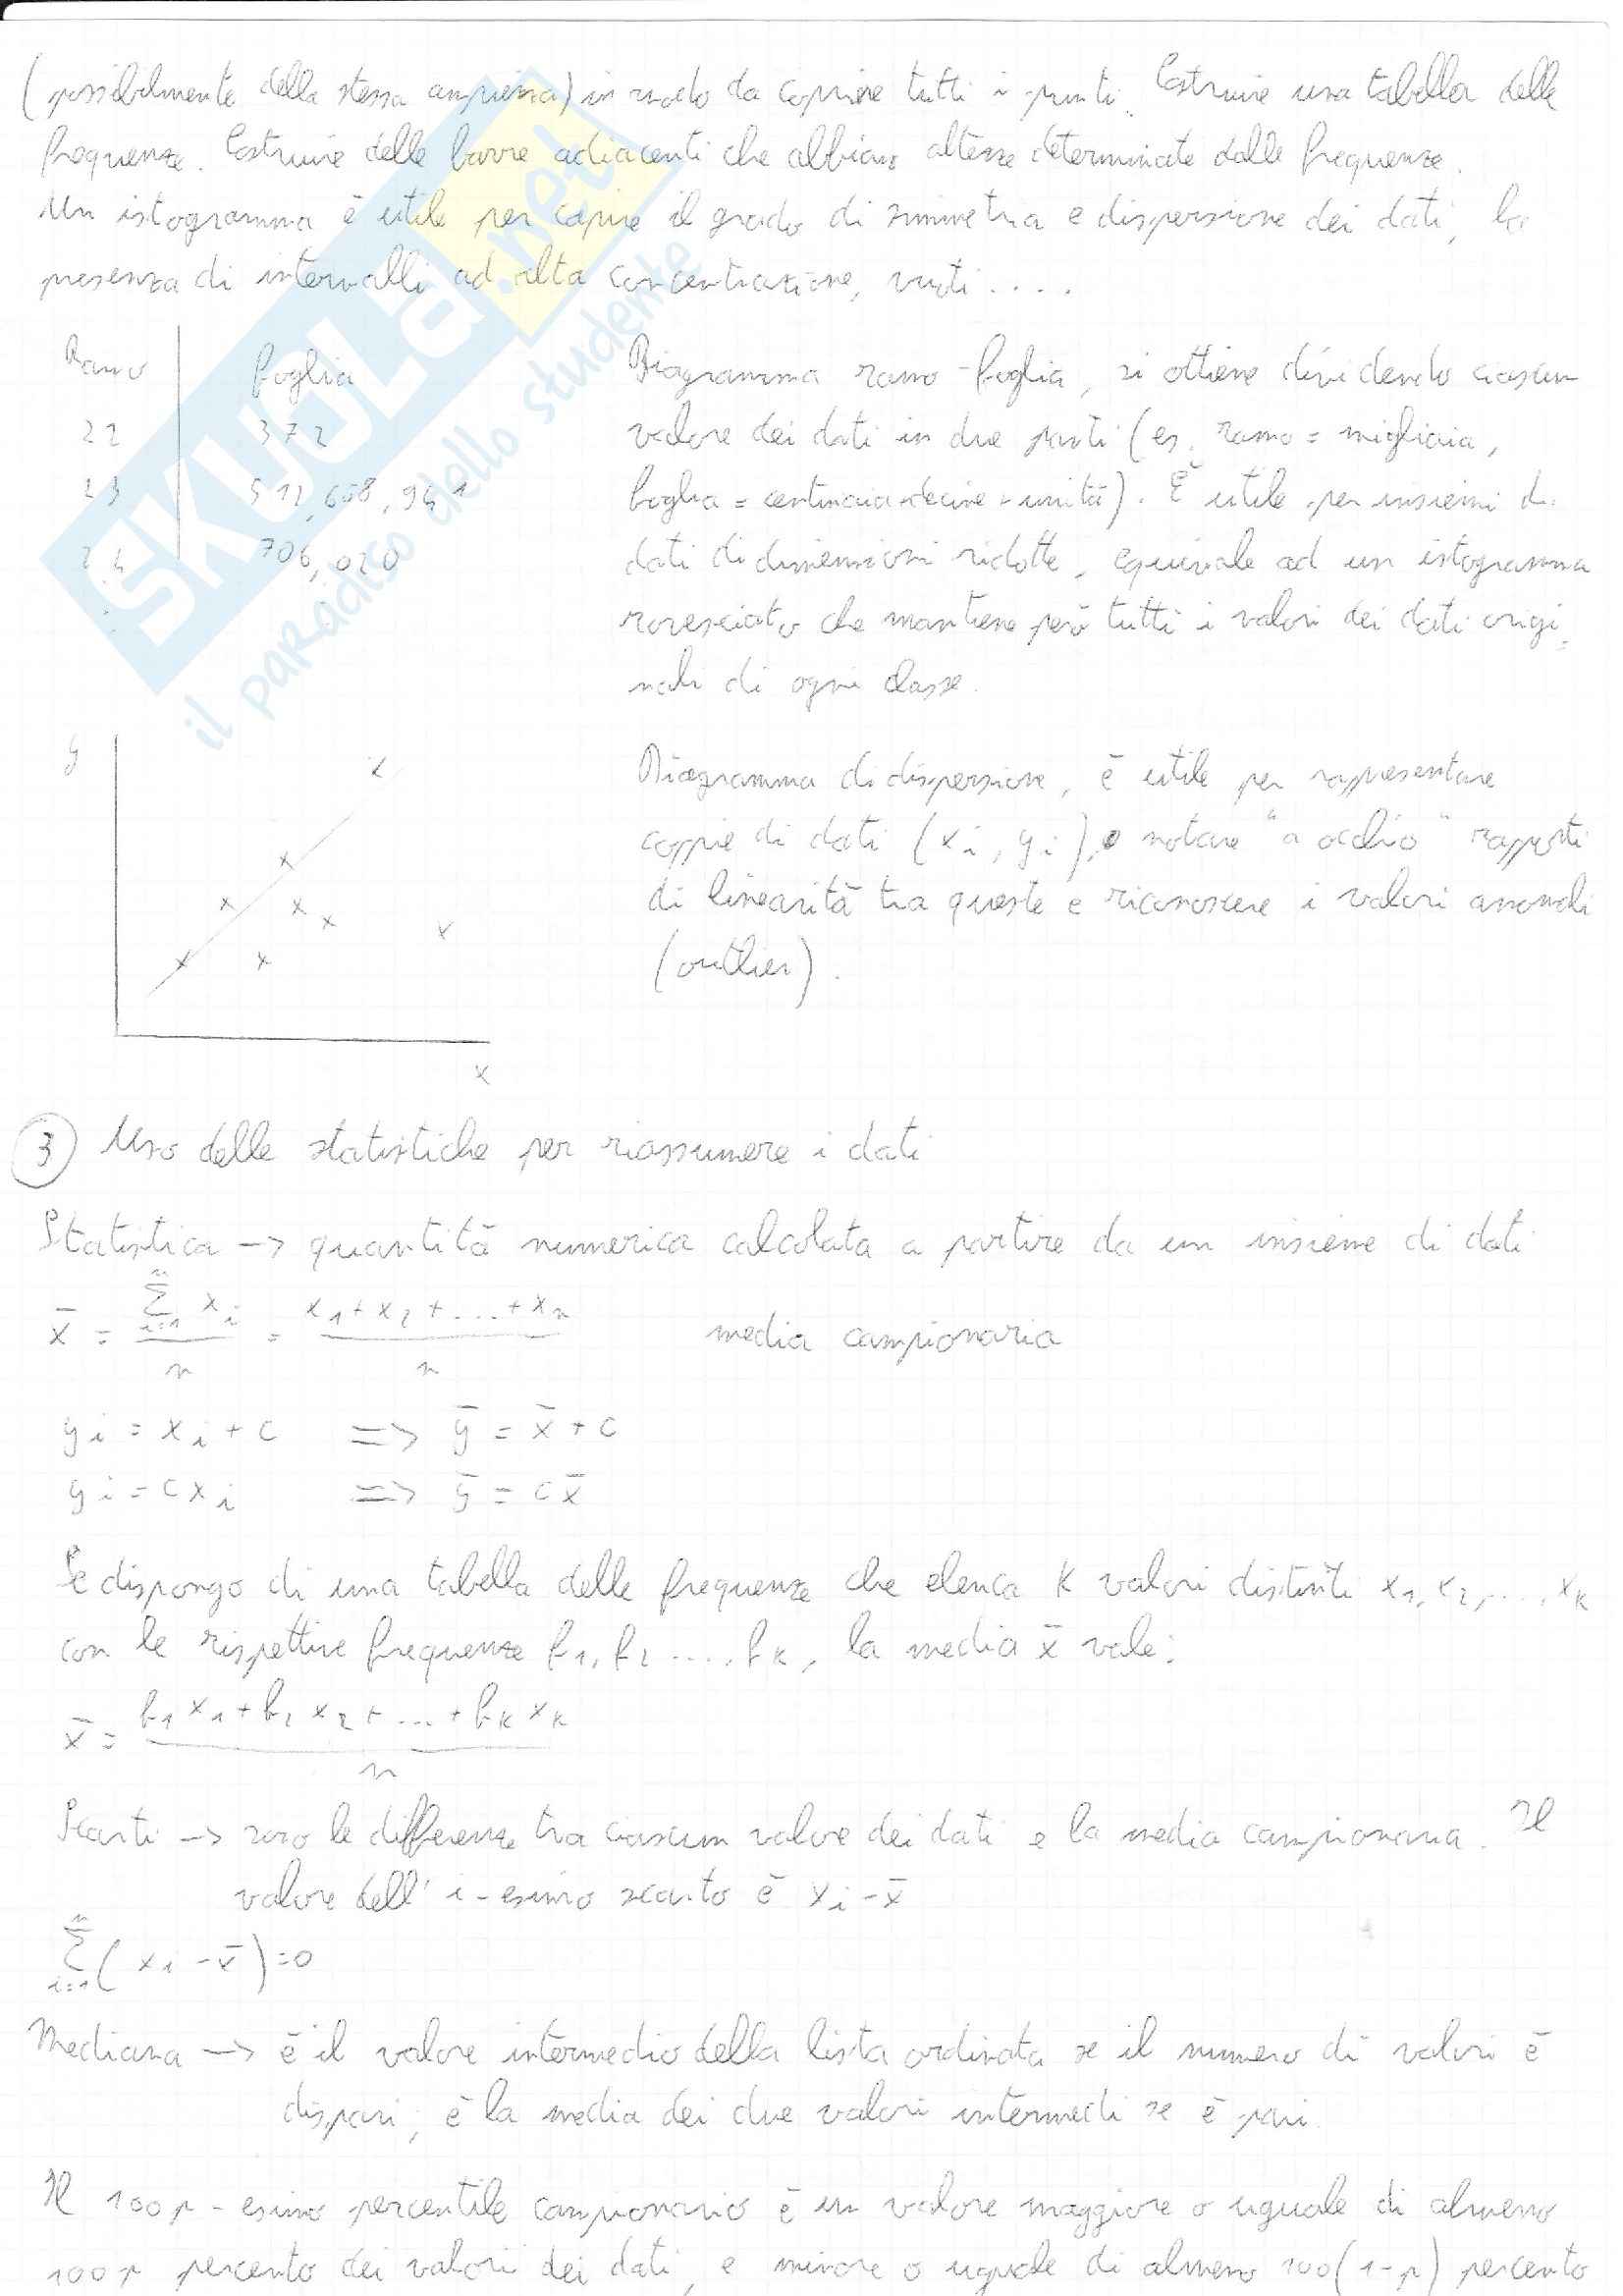 (possibilmente della stessa ampiezza) in modo da coprire tutti i punti. Costruire una tabella delle
frequenze. Costruire delle barre adiacenti che abbiano altezze determinate dalle frequenze.
Un istogramma è utile per capire il grado di simmetria e dispersione dei dati, la
presenza di intervalli ad alta concentrazione, vuoti ....
Ramo | foglia
22 | 372
23 | 512, 608, 941
24 | 706, 020
Diagramma ramo-foglia, si ottiene dividendo ciascun
valore dei dati in due parti (es. ramo = migliaia,
foglia = centinaia+decine+unità). È utile per insiemi di
dati di dimensioni ridotte, equivale ad un istogramma
rovesciato che mantiene però tutti i valori dei dati origi
nali di ogni classe.
y
x
Diagramma di dispersione, è utile per rappresentare
coppie di dati (xi, yi), e notare "a occhio" rapporti
di linearità tra queste e riconoscere i valori anomali
(outlier).
3 Uso delle statistiche per riassumere i dati
Statistica -> quantità numerica calcolata a partire da un insieme di dati
x̄ = Σ(i=1, n) xi / n = x1+x2+...+xn / n media campionaria
yi = xi + c => ȳ = x̄ + c
yi = cxi => ȳ = cx̄
Se dispongo di una tabella delle frequenze che elenca k valori distinti x1, x2, ..., xk
con le rispettive frequenze f1, f2 ..., fk, la media x̄ vale:
x̄ = f1x1+f2x2+...+fkxk / n
Scarti -> sono le differenze tra ciascun valore dei dati e la media campionaria. Il
valore dell'i-esimo scarto è xi-x̄
Σ(i=1, n) (xi-x̄)=0
Mediana -> è il valore intermedio della lista ordinata se il numero di valori è
dispari; è la media dei due valori intermedi se è pari.
Il 100p-esimo percentile campionario è un valore maggiore o uguale di almeno
100p percento dei valori dei dati, e minore o uguale di almeno 100(1-p) percento
SKUOLa.net
il paradiso dello studente